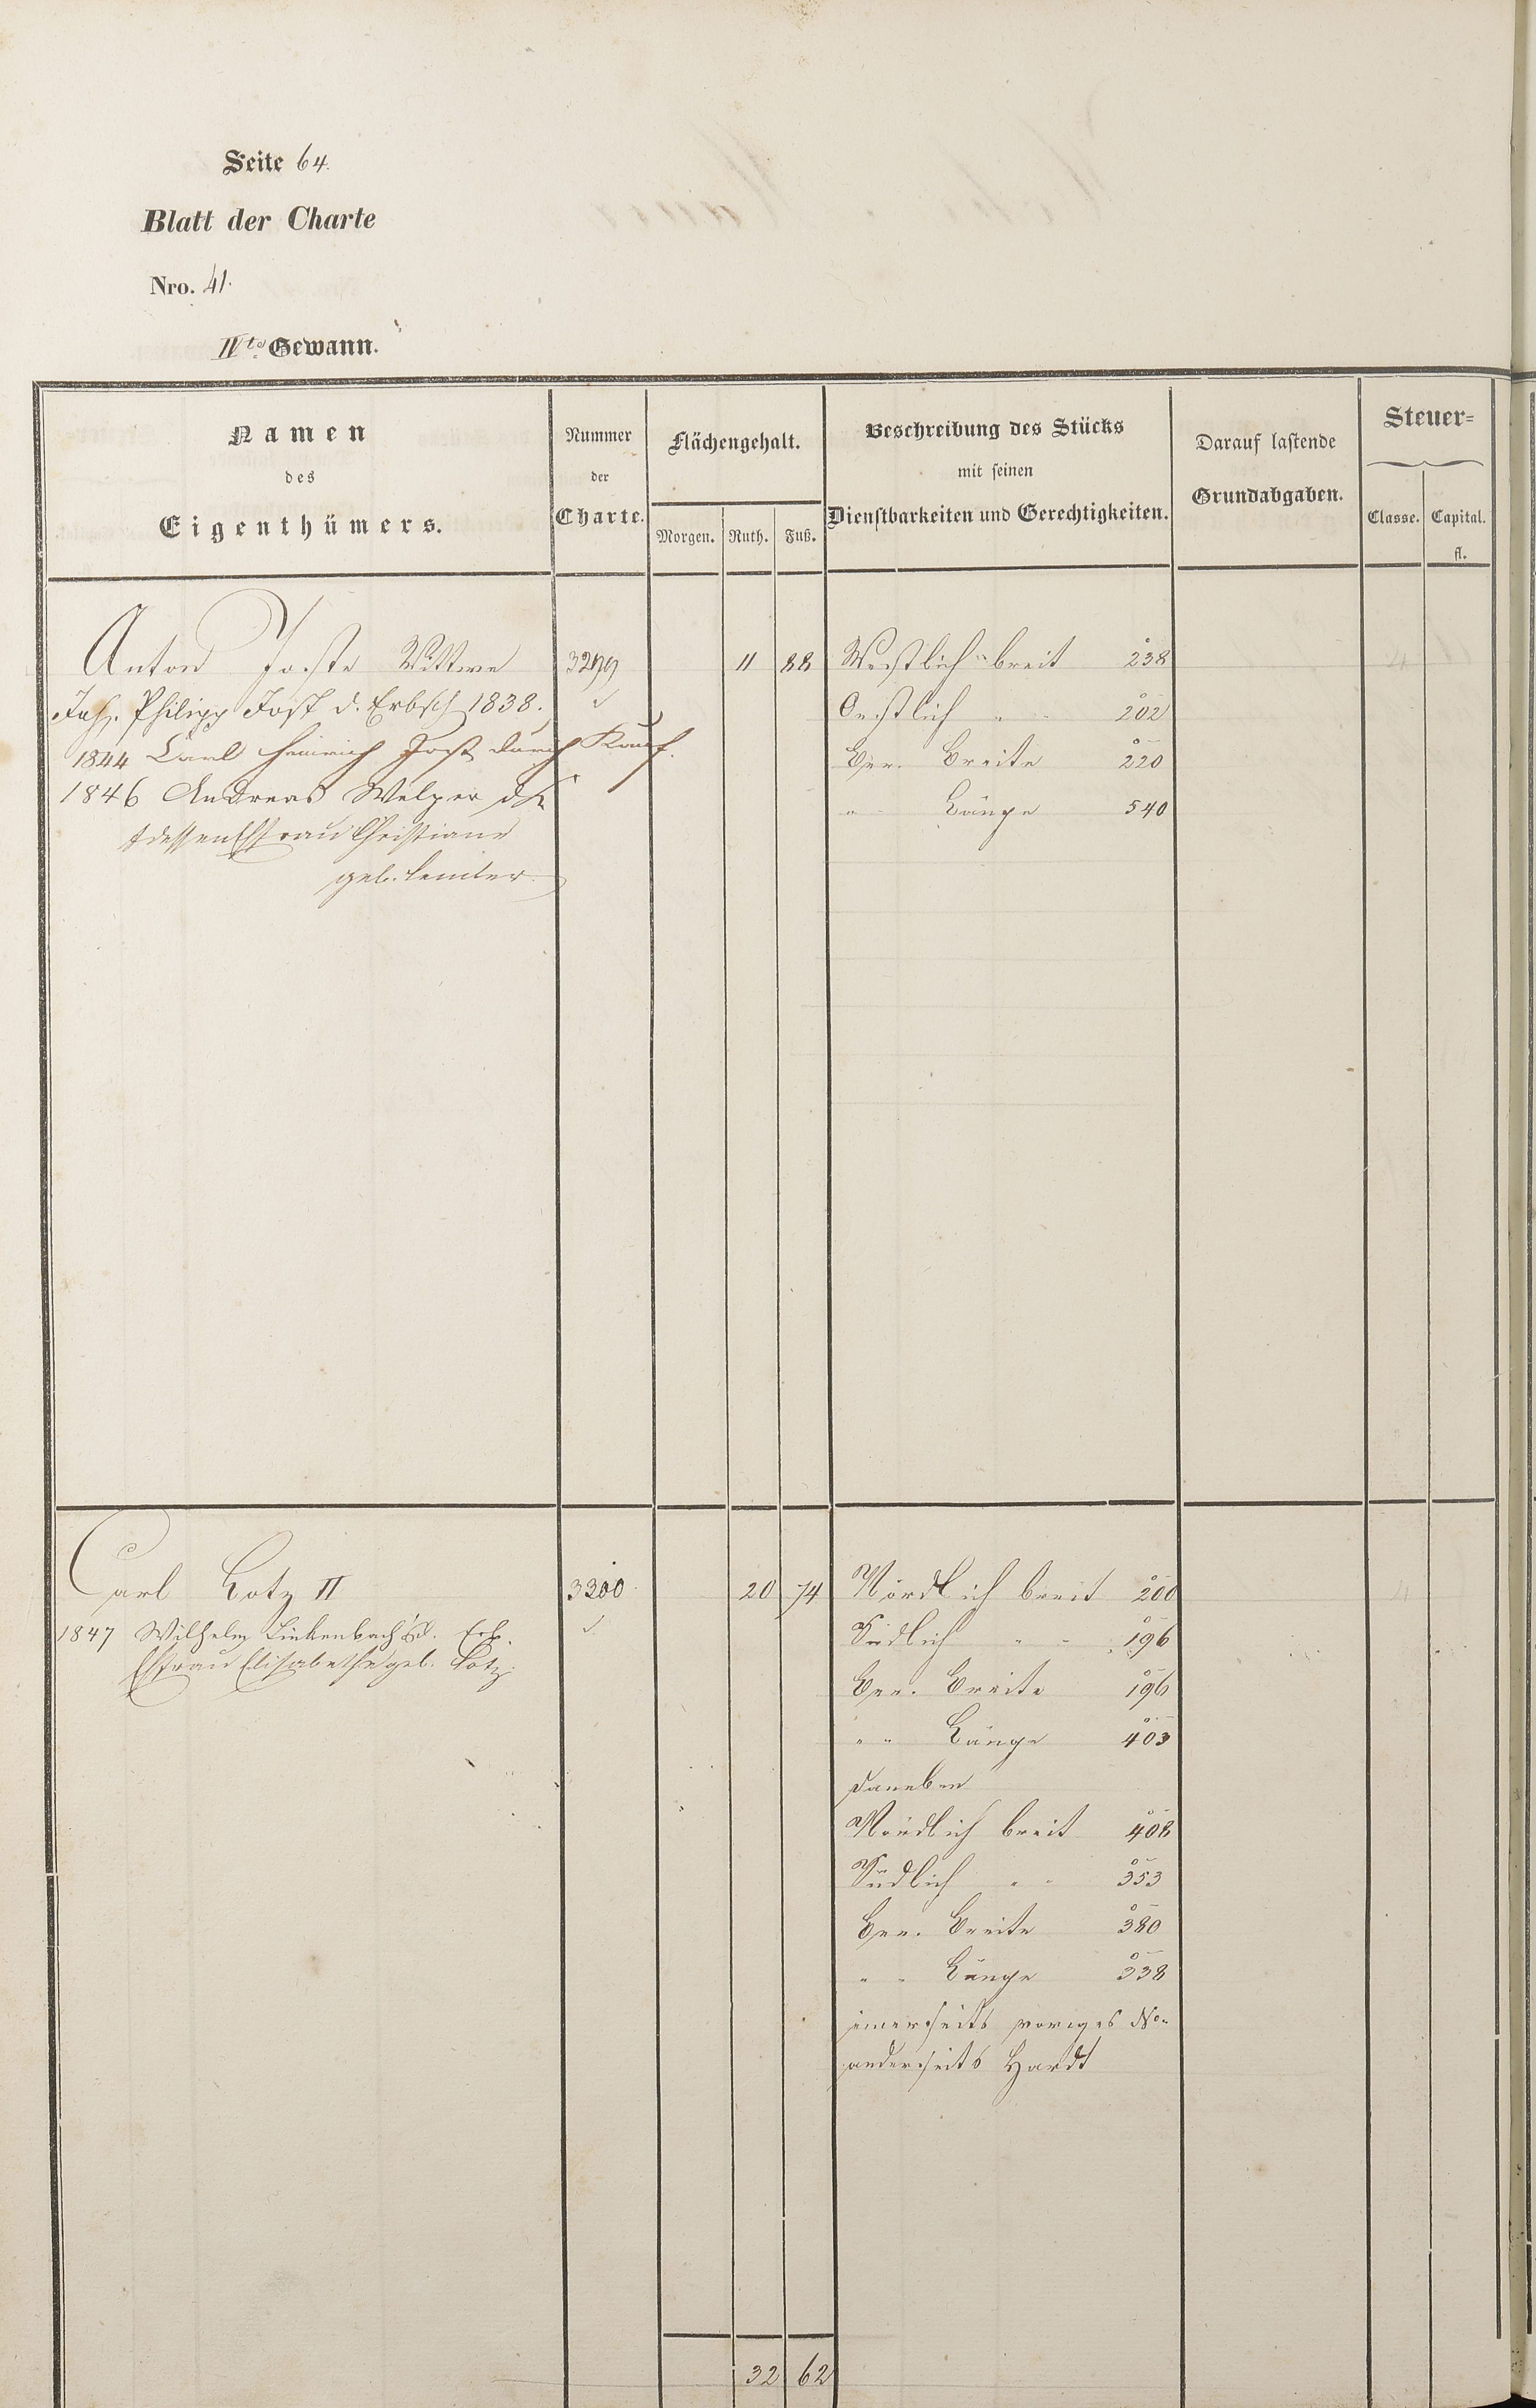 Seite 64.
Blatt der Charte
Nro. 41.
IVte Gewann.
Namen
des
Eigenthümers.
Nummer
der
Charte.
Flächengehalt.
Morgen. Ruth. Fuß.
Beschreibung des Stücks
mit seinen
Dienstbarkeiten und Gerechtigkeiten.
Darauf lastende
Grundabgaben.
Steuer=
Classe. Capital.
fl.
Anton Joste Wittwe 3299 11 88 Westlich breit 238
Joh. Philipp Jost d. Erbsch 1838. Oestlich " 202
1844 Carl Heinrich Jost durch Kauf. Ger. Breite 220
1846 Andreas Welzer " Länge 540
dessen Ehfrau Christiane
geb.
Carl Lotz II 3300 20 74 Nördlich breit 200
1847 Wilhelm Linkenbach Südlich " " 196
Ehfrau Elisabethe geb. Lotz. Ger. Breite 196
" " Länge 403
daneben
Nördlich breit 408
Südlich " " 353
Ger. Breite 380
" " Länge 338
einerseits voriges No.
anderseits Hardt
32 62